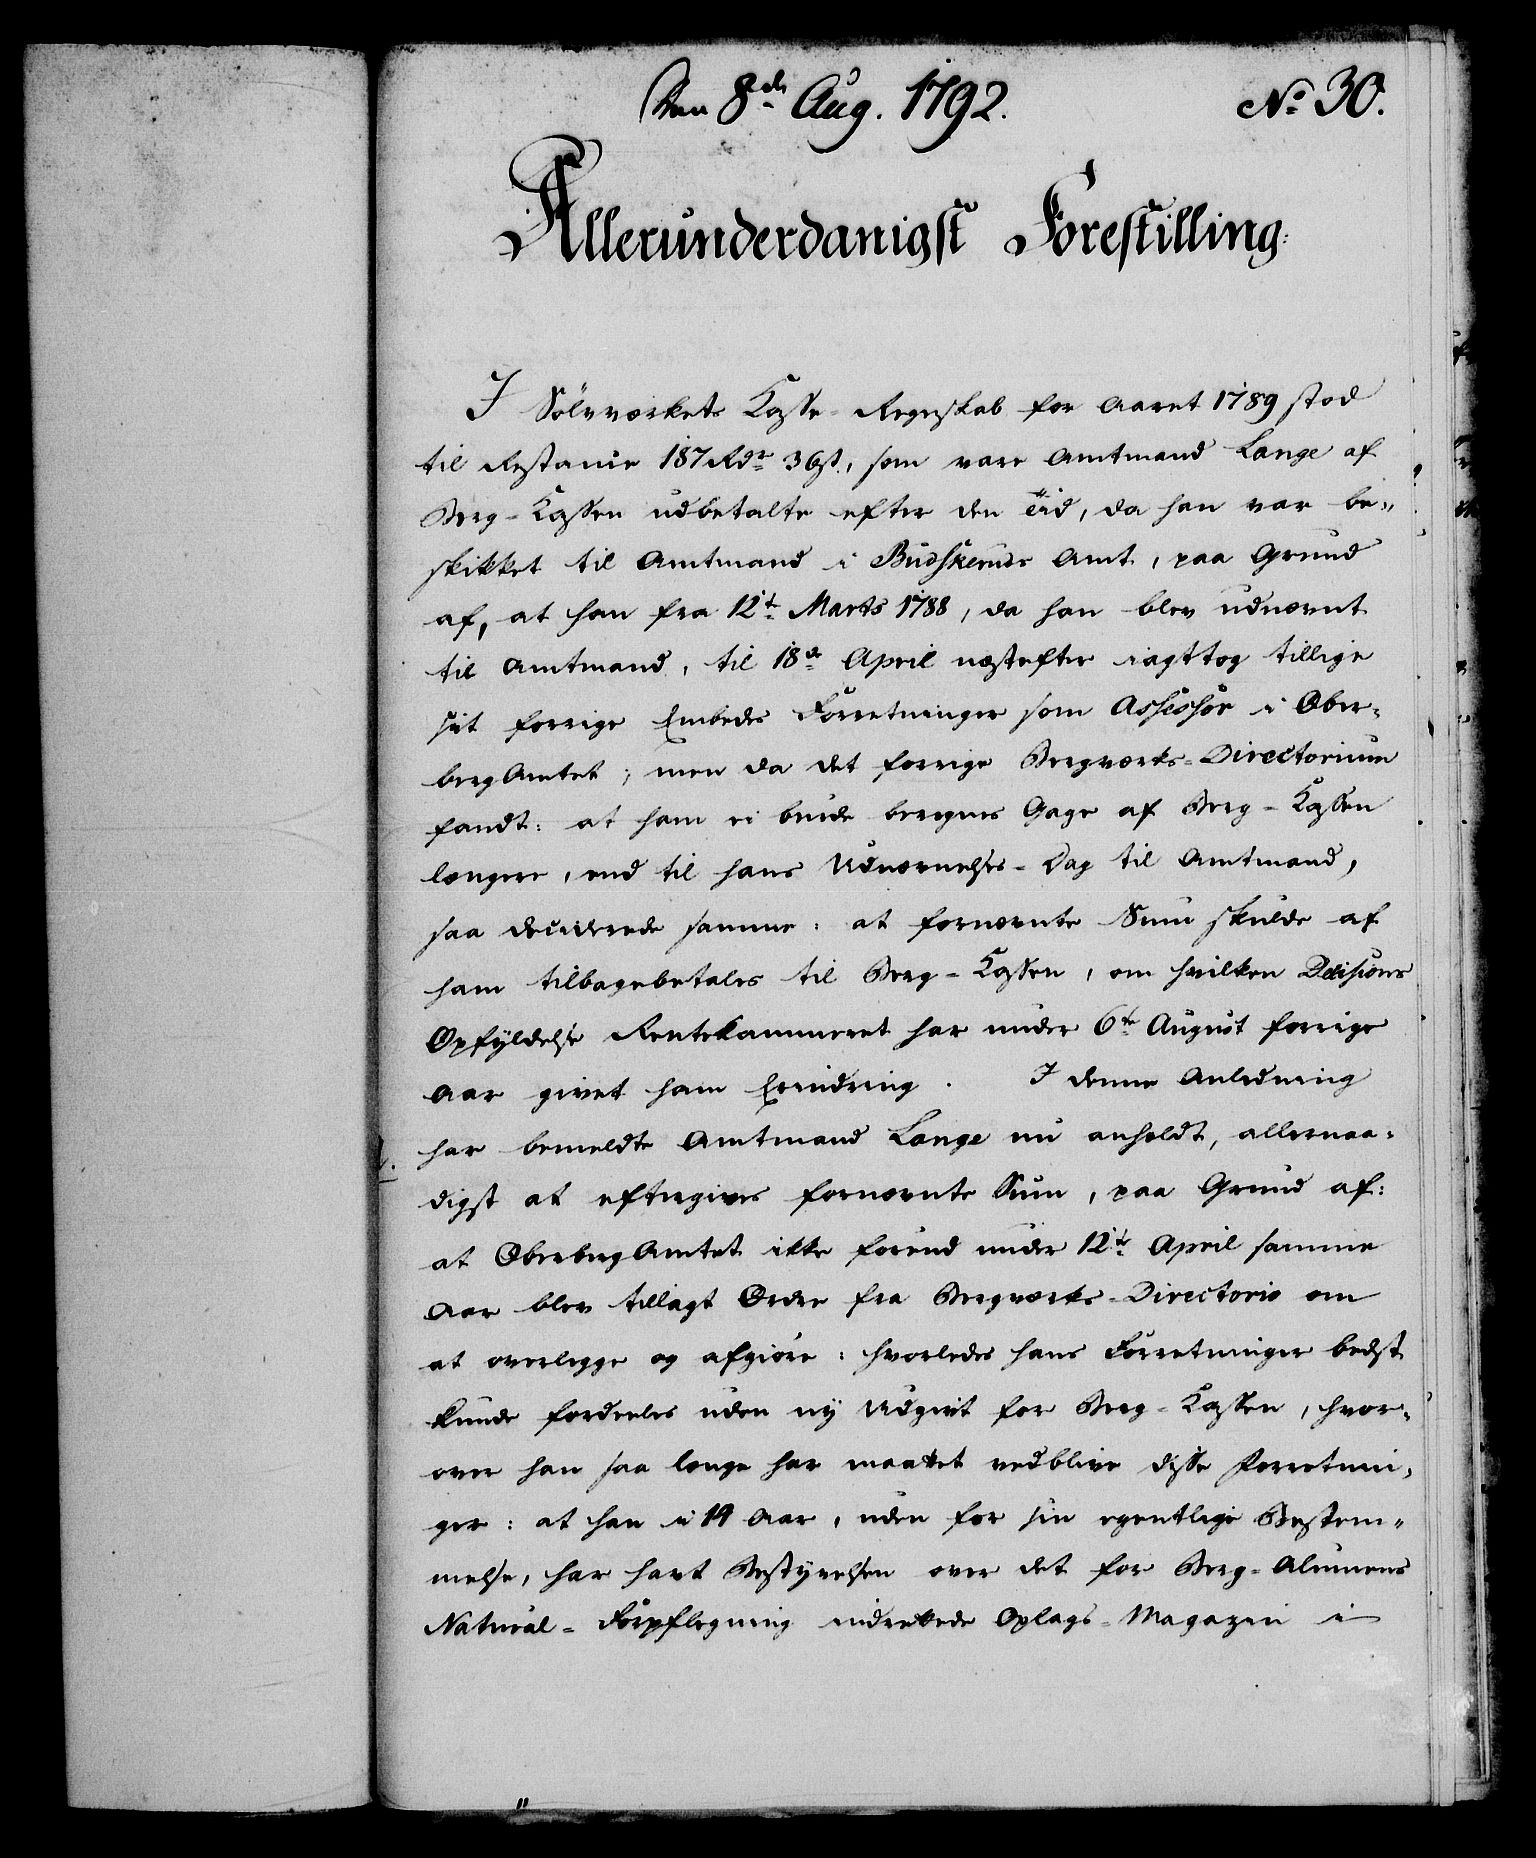 Den 8de Aug. 1792. No 30.
Allerunderdanigst Forestilling:
I Sölvværkets Casse-Regnskab for Aaret 1789 stod
til Restance 187 Rdr 36 s., som vare Amtmand Lange af
Berg-Cassen udbetalte efter den Tiid, da han var be-
skikket til Amtmand i Budskeruds Amt, paa Grund
af, at han fra 12te Marts 1788, da han blev udnævnt
til Amtmand, til 18de April næstefter iagttog tillige
sit forrige Embedes Forretninger som Assessor i Ober-
bergAmtet; men da det forrige Bergværks-Directorium
fandt: at ham ei burde beregnes Gage af Berg-Cassen
længere, end til hans Udnævnelses-Dag til Amtmand,
saa deciderede samme: at fornævnte Sum skulde af
ham tilbagebetales til Berg-Cassen, om hvilken Decisions
Opfyldelse Rentekammeret har under 6te August forrige
Aar givet ham Erindring. I denne Anledning
har bemeldte Amtmand Lange nu anholdt, allernaa-
digst at eftergives fornævnte Sum, paa Grund af:
at OberbergAmtet ikke forend under 12te April samme
Aar blev tillagt Ordre fra Bergværks-Directorio om
at overlegge og afgiöre: hvorledes hans Forretninger bedst
kunde fordeeles uden ny Udgivt for Berg-Cassen, hvor-
over han saa længe har maattet vedblive disse Forretnin-
ger: at han i 14 Aar, uden for sin egentlige Bestem-
melse, har havt Bestyrelsen over det for Berg-Alumens
Natural-Forpflegning indrettede Oplags-Magazin i